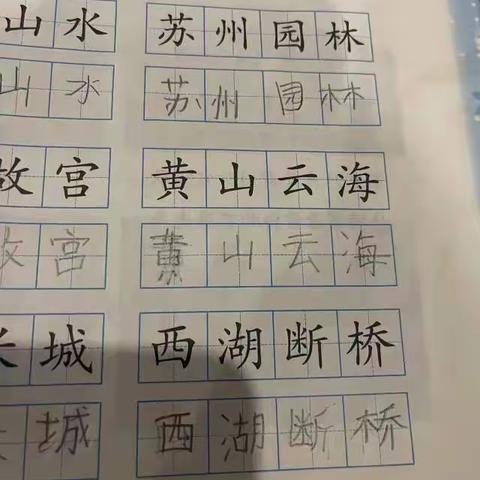 山水 苏州园林
山水 苏州园林
故宫 黄山云海
故宫 黄山云海
长城 西湖断桥
城 西湖断桥